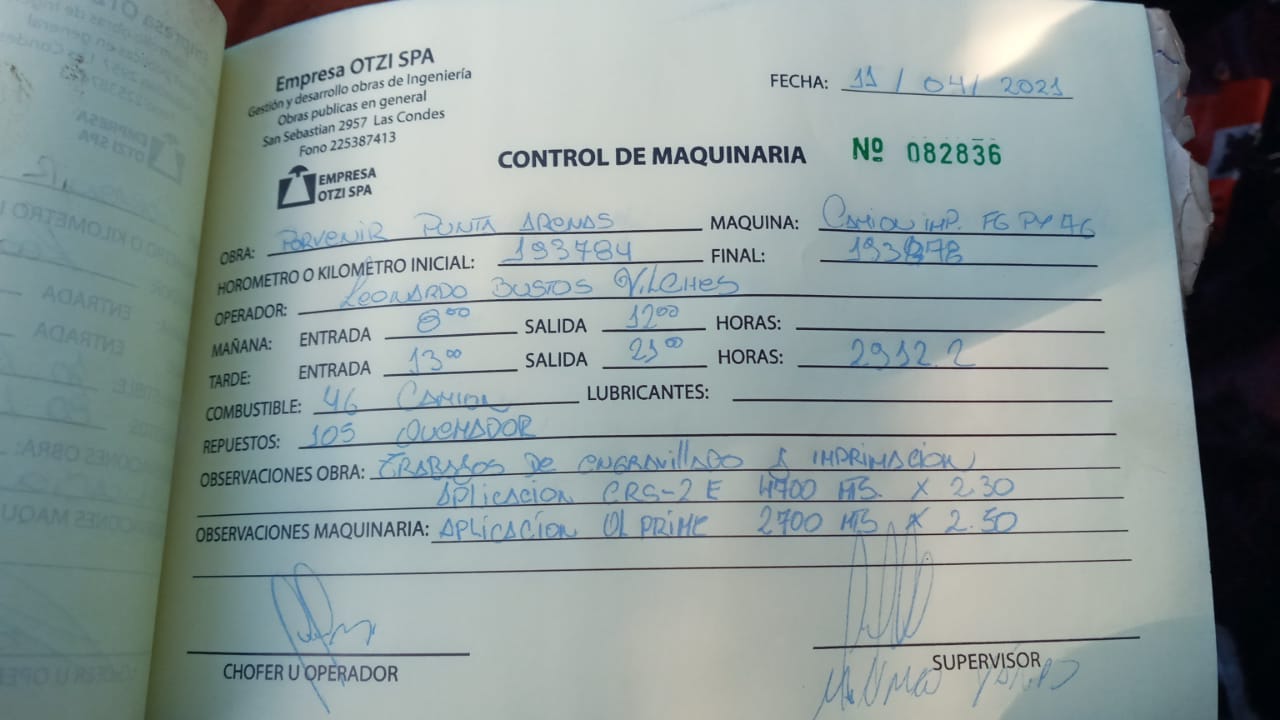 Empresa OTZI SPA
Gestión y desarrollo obras de Ingeniería
Obras publicas en general
San Sebastian 2957 Las Condes
Fono 225387413
EMPRESA
OTZI SPA
FECHA: 11/04/2021
CONTROL DE MAQUINARIA Nº 082836
OBRA: PORVENIR PUNTA ARENAS MAQUINA: CAMION IMP. FG PY 76
HOROMETRO O KILOMETRO INICIAL: 193784 FINAL:
OPERADOR: LEONARDO BUSTOS VILCHES
MAÑANA: ENTRADA 8⁰⁰ SALIDA 12⁰⁰ HORAS:
TARDE: ENTRADA 13⁰⁰ SALIDA 21⁰⁰ HORAS: 2912.2
COMBUSTIBLE: 46 CAMION LUBRICANTES:
REPUESTOS: 105 QUEMADOR
OBSERVACIONES OBRA: TRABAJOS DE ENGRAVILLADO E IMPRIMACION
APLICACION CRS-2E 4700 MTS. X 2.30
OBSERVACIONES MAQUINARIA: APLICACION OL PRIME 2700 MTS X 2.50
CHOFER U OPERADOR
SUPERVISOR